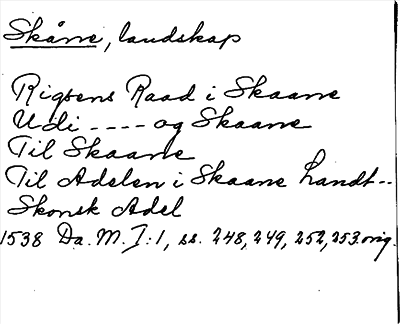 Skåne, landskap
Rigsens Raad i Skaane
Udi ---- og Skaane
Til Skaane
Til Adelen i Skaane handt--
Skonsk Adel
1538 Da. M. I:1, ss. 248, 249, 252, 253 orig.